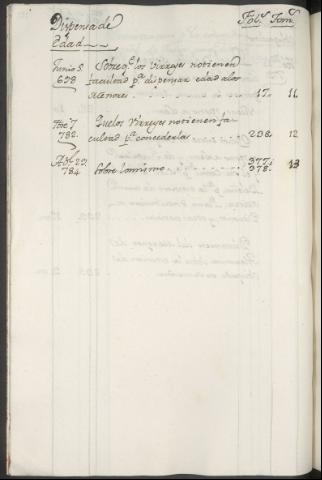 Dispensa de Fol.s Tom.s
Edad
Junio 5. Sobre q.e los Virreyes no tienen
698 facultad p.a dispensar edad a los
Menores. 17. 11
Que los Virreyes no tienen fa-
782. cultad p.a concederlas 298. 12
Ab.l 29. 377.
784. Sobre lo mismo 378. 13